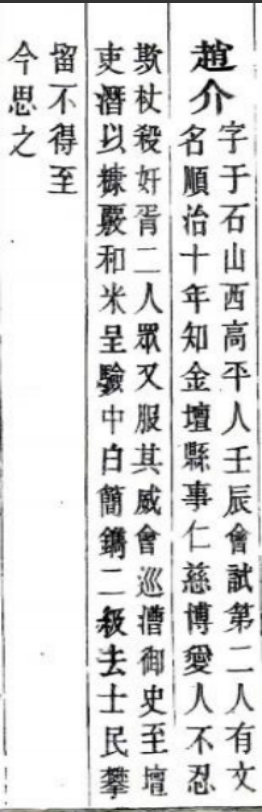 趙介
字于石山西高平人壬辰會試第二人有文
名順治十年知金壇縣事仁慈博愛人不忍
欺杖殺奸胥二人眾又服其威會巡漕御史至壇
吏潛以糠覈和米呈驗中白簡鐫二級去士民攀
留不得至
今思之